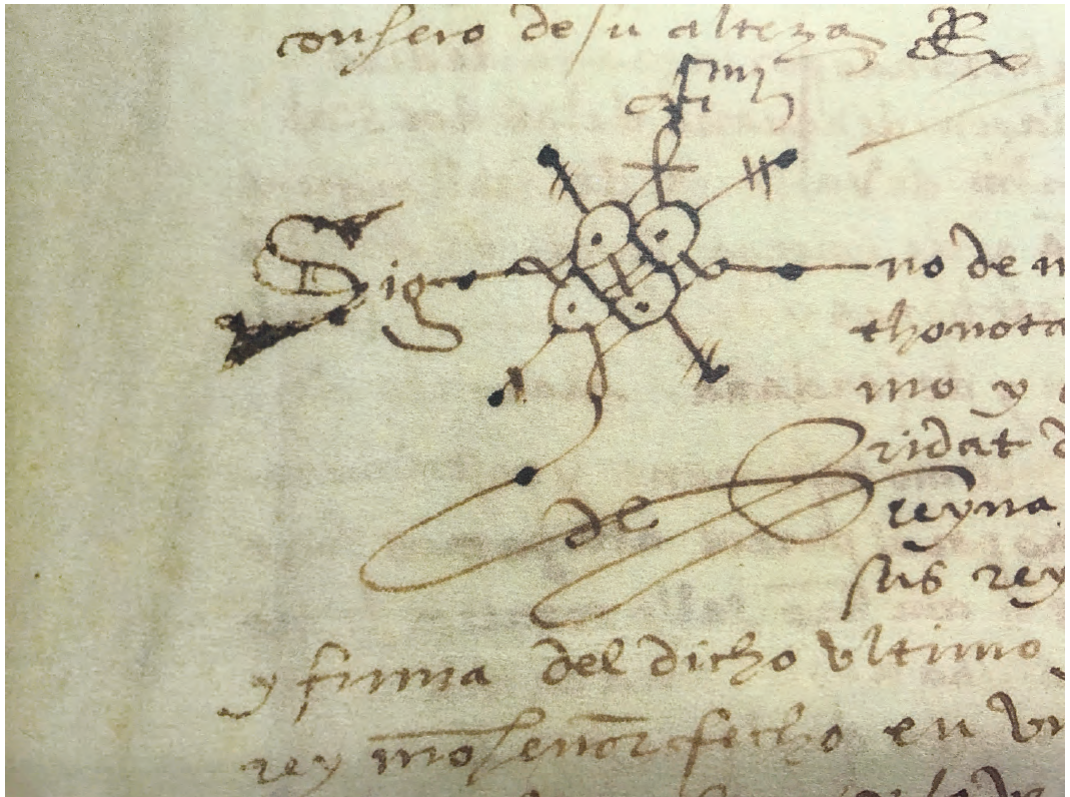 consero de su alteza
Sig no de m
thonota
mo y
ridat d
de reyna
sus rey
y firma del dicho ultimo
rey mo señor fecho en un